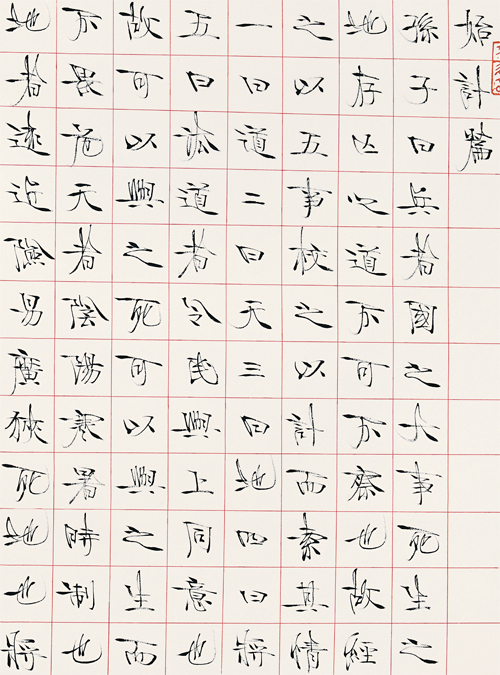 始計篇
孫子曰兵者國之大事死生之
地存亡之道不可不察也故經
之以五事校之以計而索其情
一曰道二曰天三曰地四曰將
五曰法道者令民與上同意也
故可以與之死可以與之生而
不畏危天者陰陽寒暑時制也
地者遠近險易廣狹死地也將